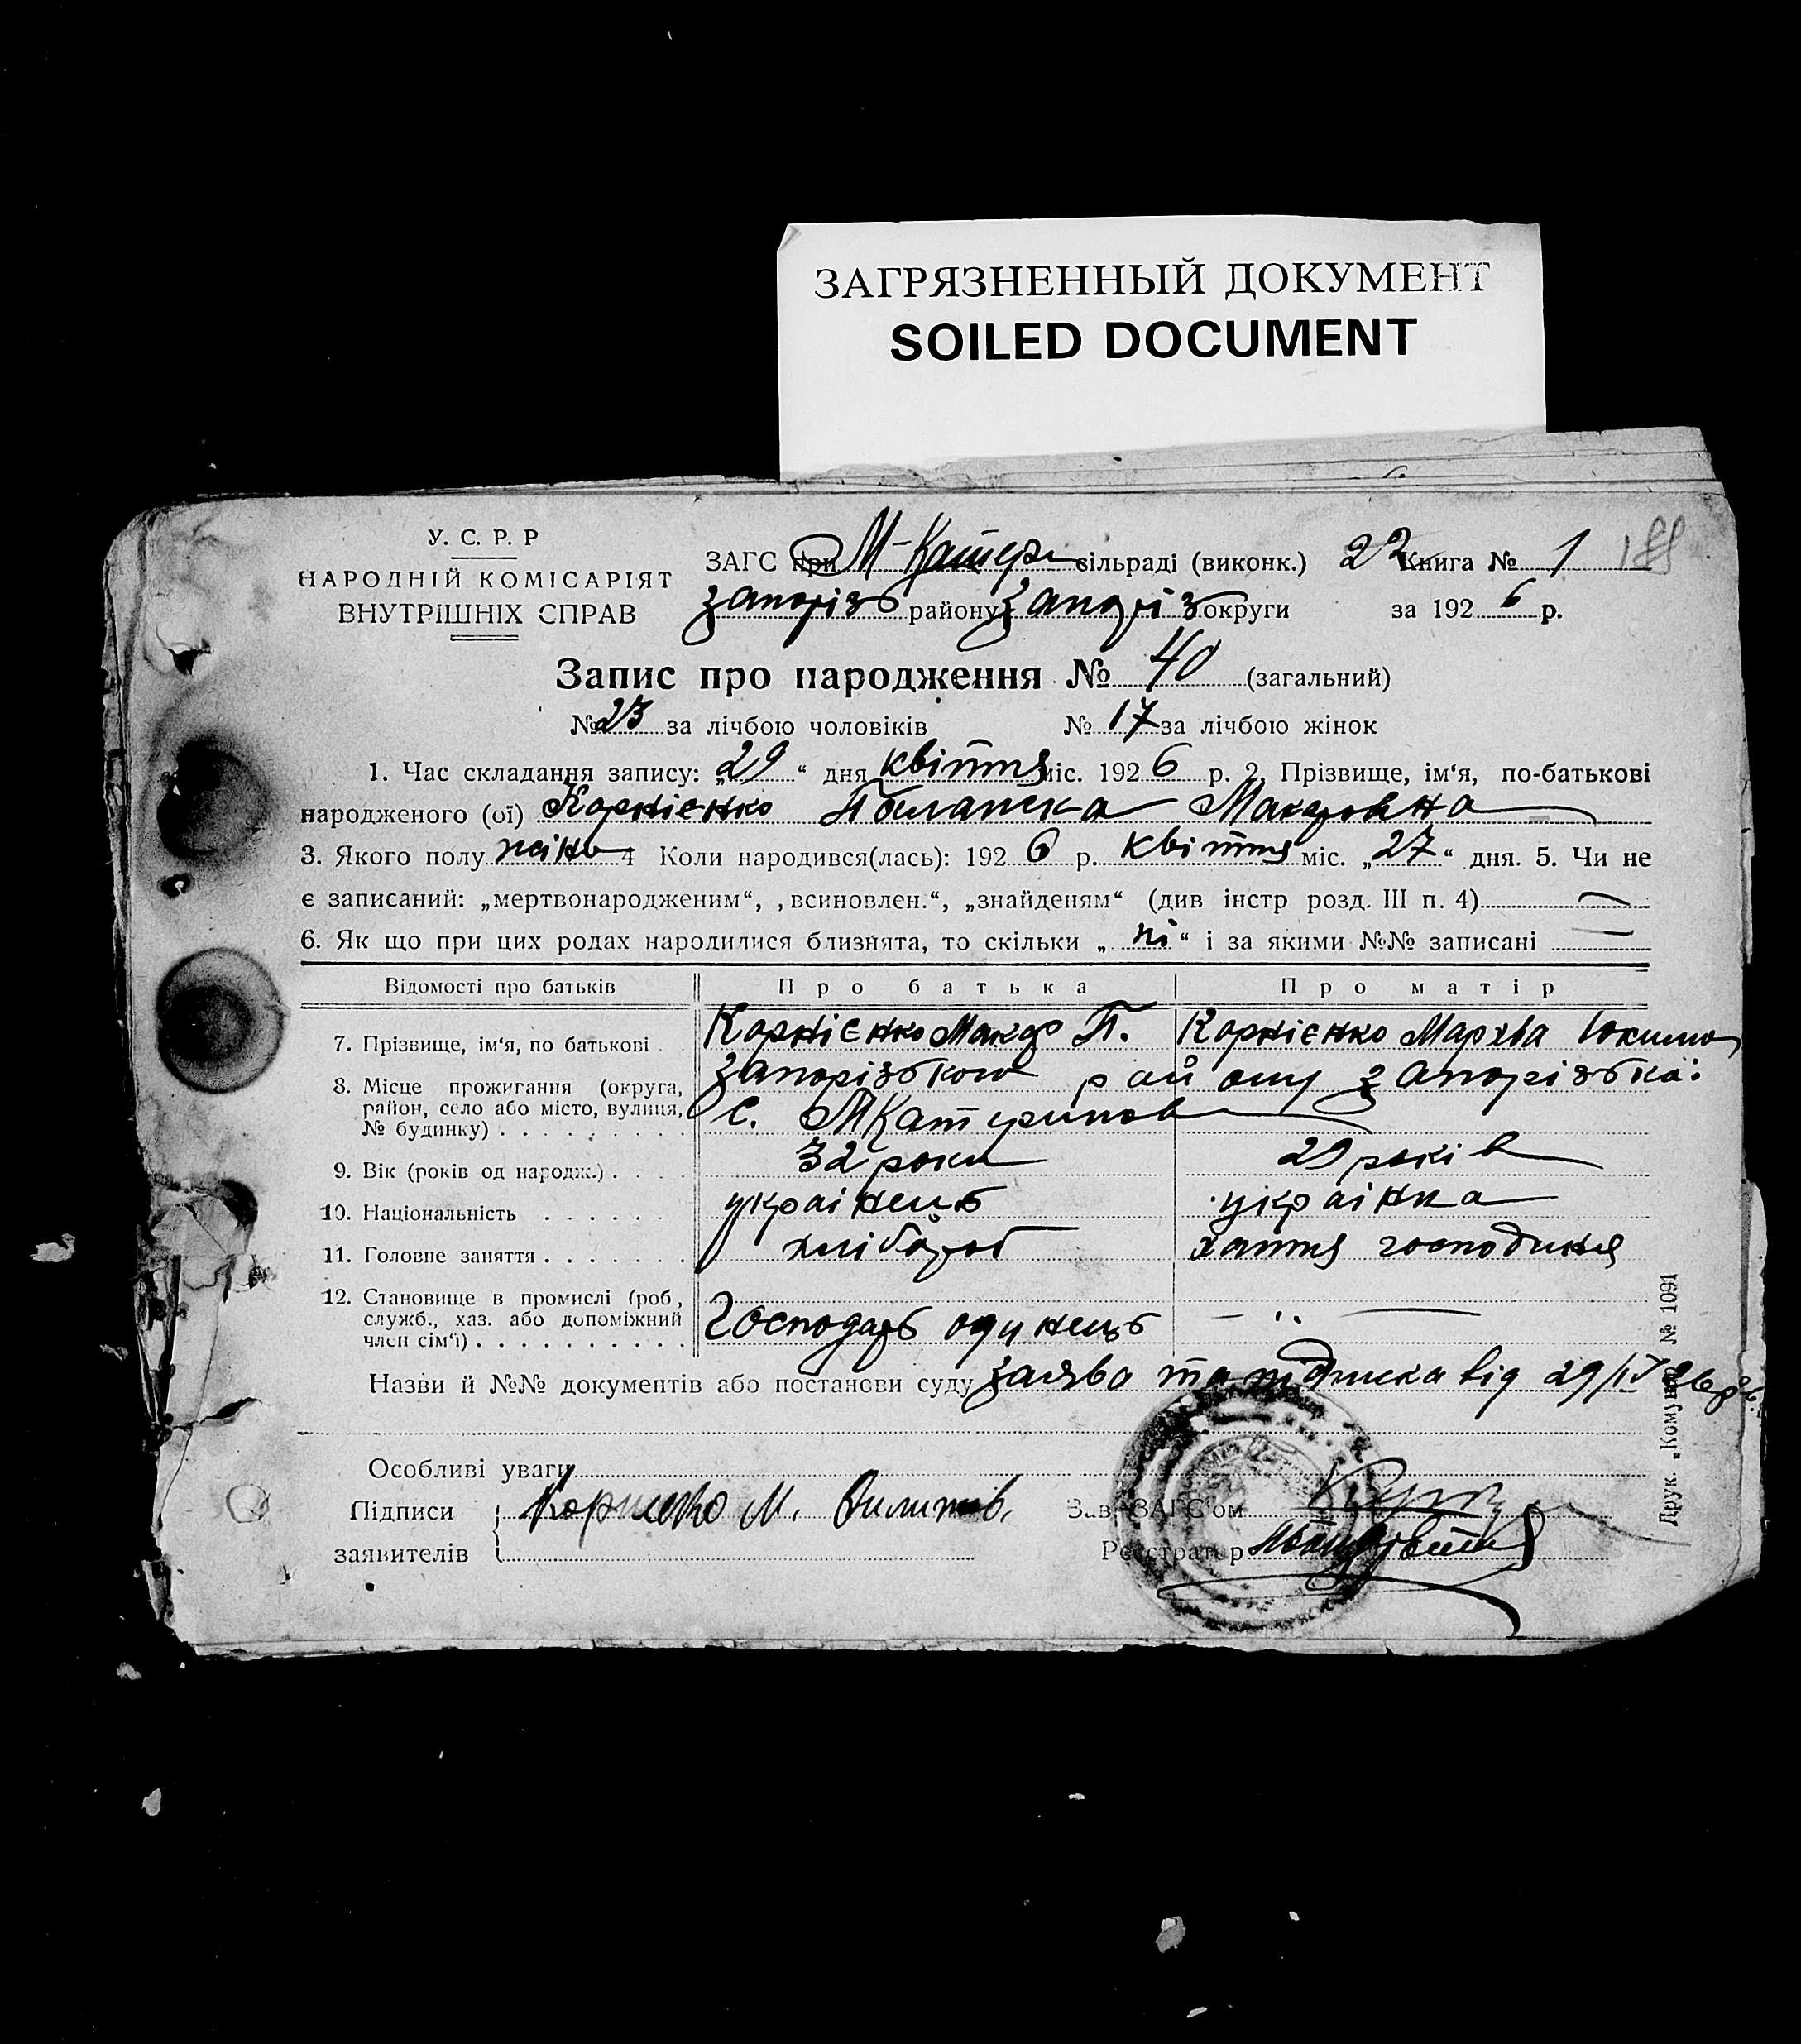 ЗАГРЯЗНЕННЫЙ ДОКУМЕНТ
SOILED DOCUMENT
У. С. Р. Р
НАРОДНІЙ КОМІСАРІЯТ
ВНУТРІШНІХ СПРАВ
ЗАГС при М-Катер сільраді (виконк.) 22 Книга № 1 188
Запорізь району Запоріз округи за 1926 р.
Запис про народження № 40 (загальний)
№ 23 за лічбою чоловіків № 17 за лічбою жінок
1. Час складання запису: „29“ дня квітня міс. 1926 р. 2. Прізвище, ім‘я, по-батькові
народженого (ої) Корнієнко Макаровна
3. Якого полу жінь 4 Коли народився(лась): 1926 р. квітня міс. „27“ дня. 5. Чи не
є записаний: „мертвонародженим“, „всиновлен.“, „знайденям“ (див інстр розд. III п. 4) —
6. Як що при цих родах народилися близнята, то скільки „ні“ і за якими №№ записані —
Відомості про батьків Про батька Про матір
7. Прізвище, ім‘я, по батькові Корнієнко Макар П. Корнієнко Мархва Юхимов
8. Місце прожигання (округа, район, село або місто, вулиця, № будинку) Запорізького району Запорізька:
с. МКатеринов
9. Вік (років од народж.) 32 роки 29 років
10. Національність українець українка
11. Головне заняття хлібороб хатня господиня
12. Становище в промислі (роб, служб., хаз. або допоміжний член сім‘ї) Господарь одинець — „ —
Назви й №№ документів або постанови суду заява та підписка від 29/IV 26р
Особливі уваги
Підписи заявителів Зав. ЗАГС‘ом
Реєстратор
Друк. „Комунар“ № 1091